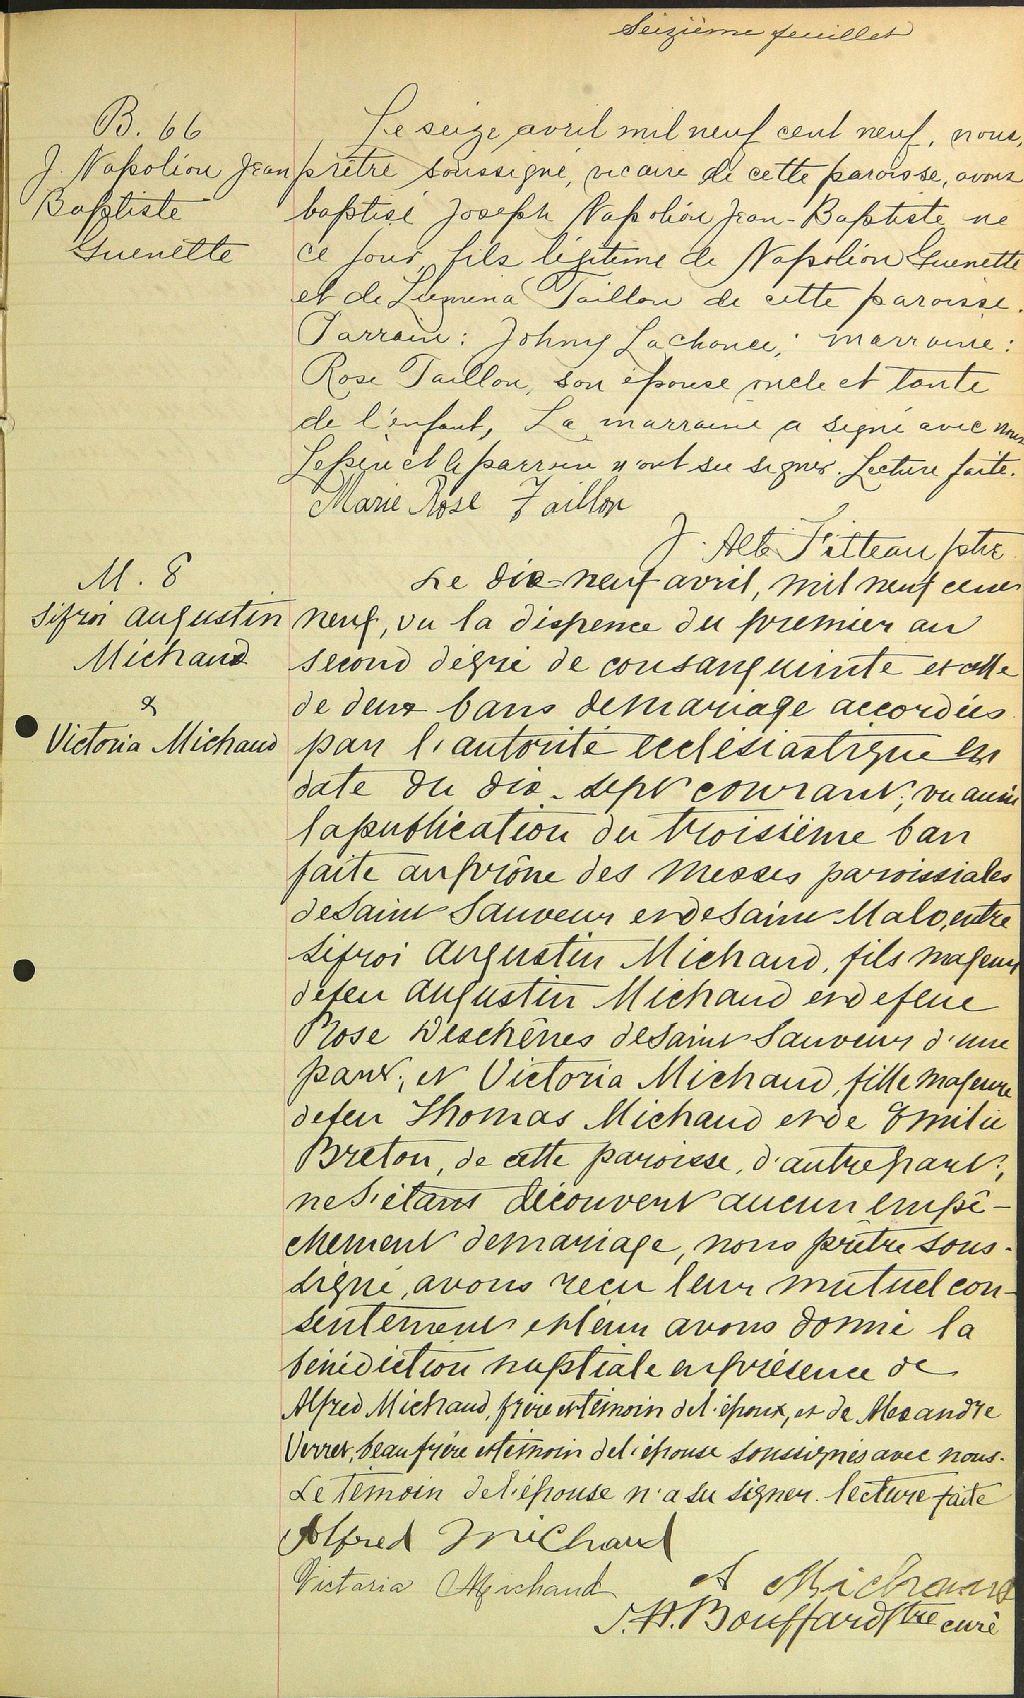 Seizième feuillet
B. 66
J. Napoléon Jean
Baptiste
Guenette
Le seize avril mil neuf cent neuf, nous,
prêtre soussigné, vicaire de cette paroisse, avons
baptisé Joseph Napoléon Jean-Baptiste né
ce jour, fils légitime de Napoléon Guenette
et de Lumina Taillon de cette paroisse.
Parrain: Johny Lachance; marraine:
Rose Taillon, son épouse oncle et tante
de l'enfant, La marraine a signé avec nous
Le père et le parrain n'ont su signer. Lecture faite.
Marie Rose Taillon
J. Alb. Filteau ptre
M. 8
Sifroi Augustin
Michaud
&
Victoria Michaud
Le dix-neuf avril, mil neuf cent
neuf, vu la dispence du premier au
second dégré de consanguinité et celle
de deux bans de mariage accordées
par l'autorité ecclésiastique en
date du dix-sept courant; vu aussi
la publication du troisième ban
faite au prône des messes paroissiales
de Saint Sauveur et de Saint Malo, entre
Sifroi Augustin Michaud, fils majeur
de feu Augustin Michaud et de feue
Rose Deschênes de Saint Sauveur d'une
part; et Victoria Michaud, fille majeure
de feu Thomas Michaud et de Emilie
Breton, de cette paroisse, d'autre part;
ne s'étant découvert aucun empê-
chement de mariage, nous prêtre sous-
signé, avons reçu leur mutuel con-
sentement et leur avons donné la
bénédiction nuptiale en présence de
Alfred Michaud, frère et témoin de l'époux, et de Alexandre
Verret, beau frère et témoin de l'épouse soussignés avec nous.
Le témoin de l'épouse n'a su signer. lecture faite
Alfred Michaud
Victoria Michaud
A Michaud
J. H. Bouffard Ptre curé